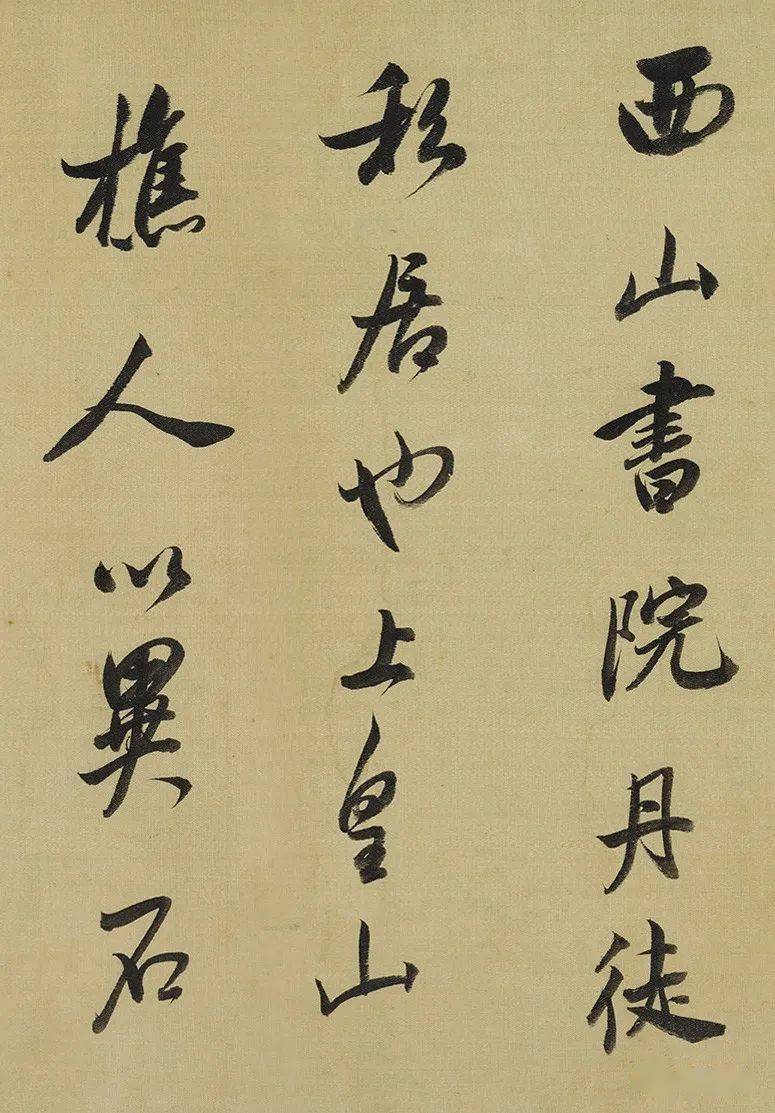 西山書院丹徒
私居也上皇山
樵人以異石